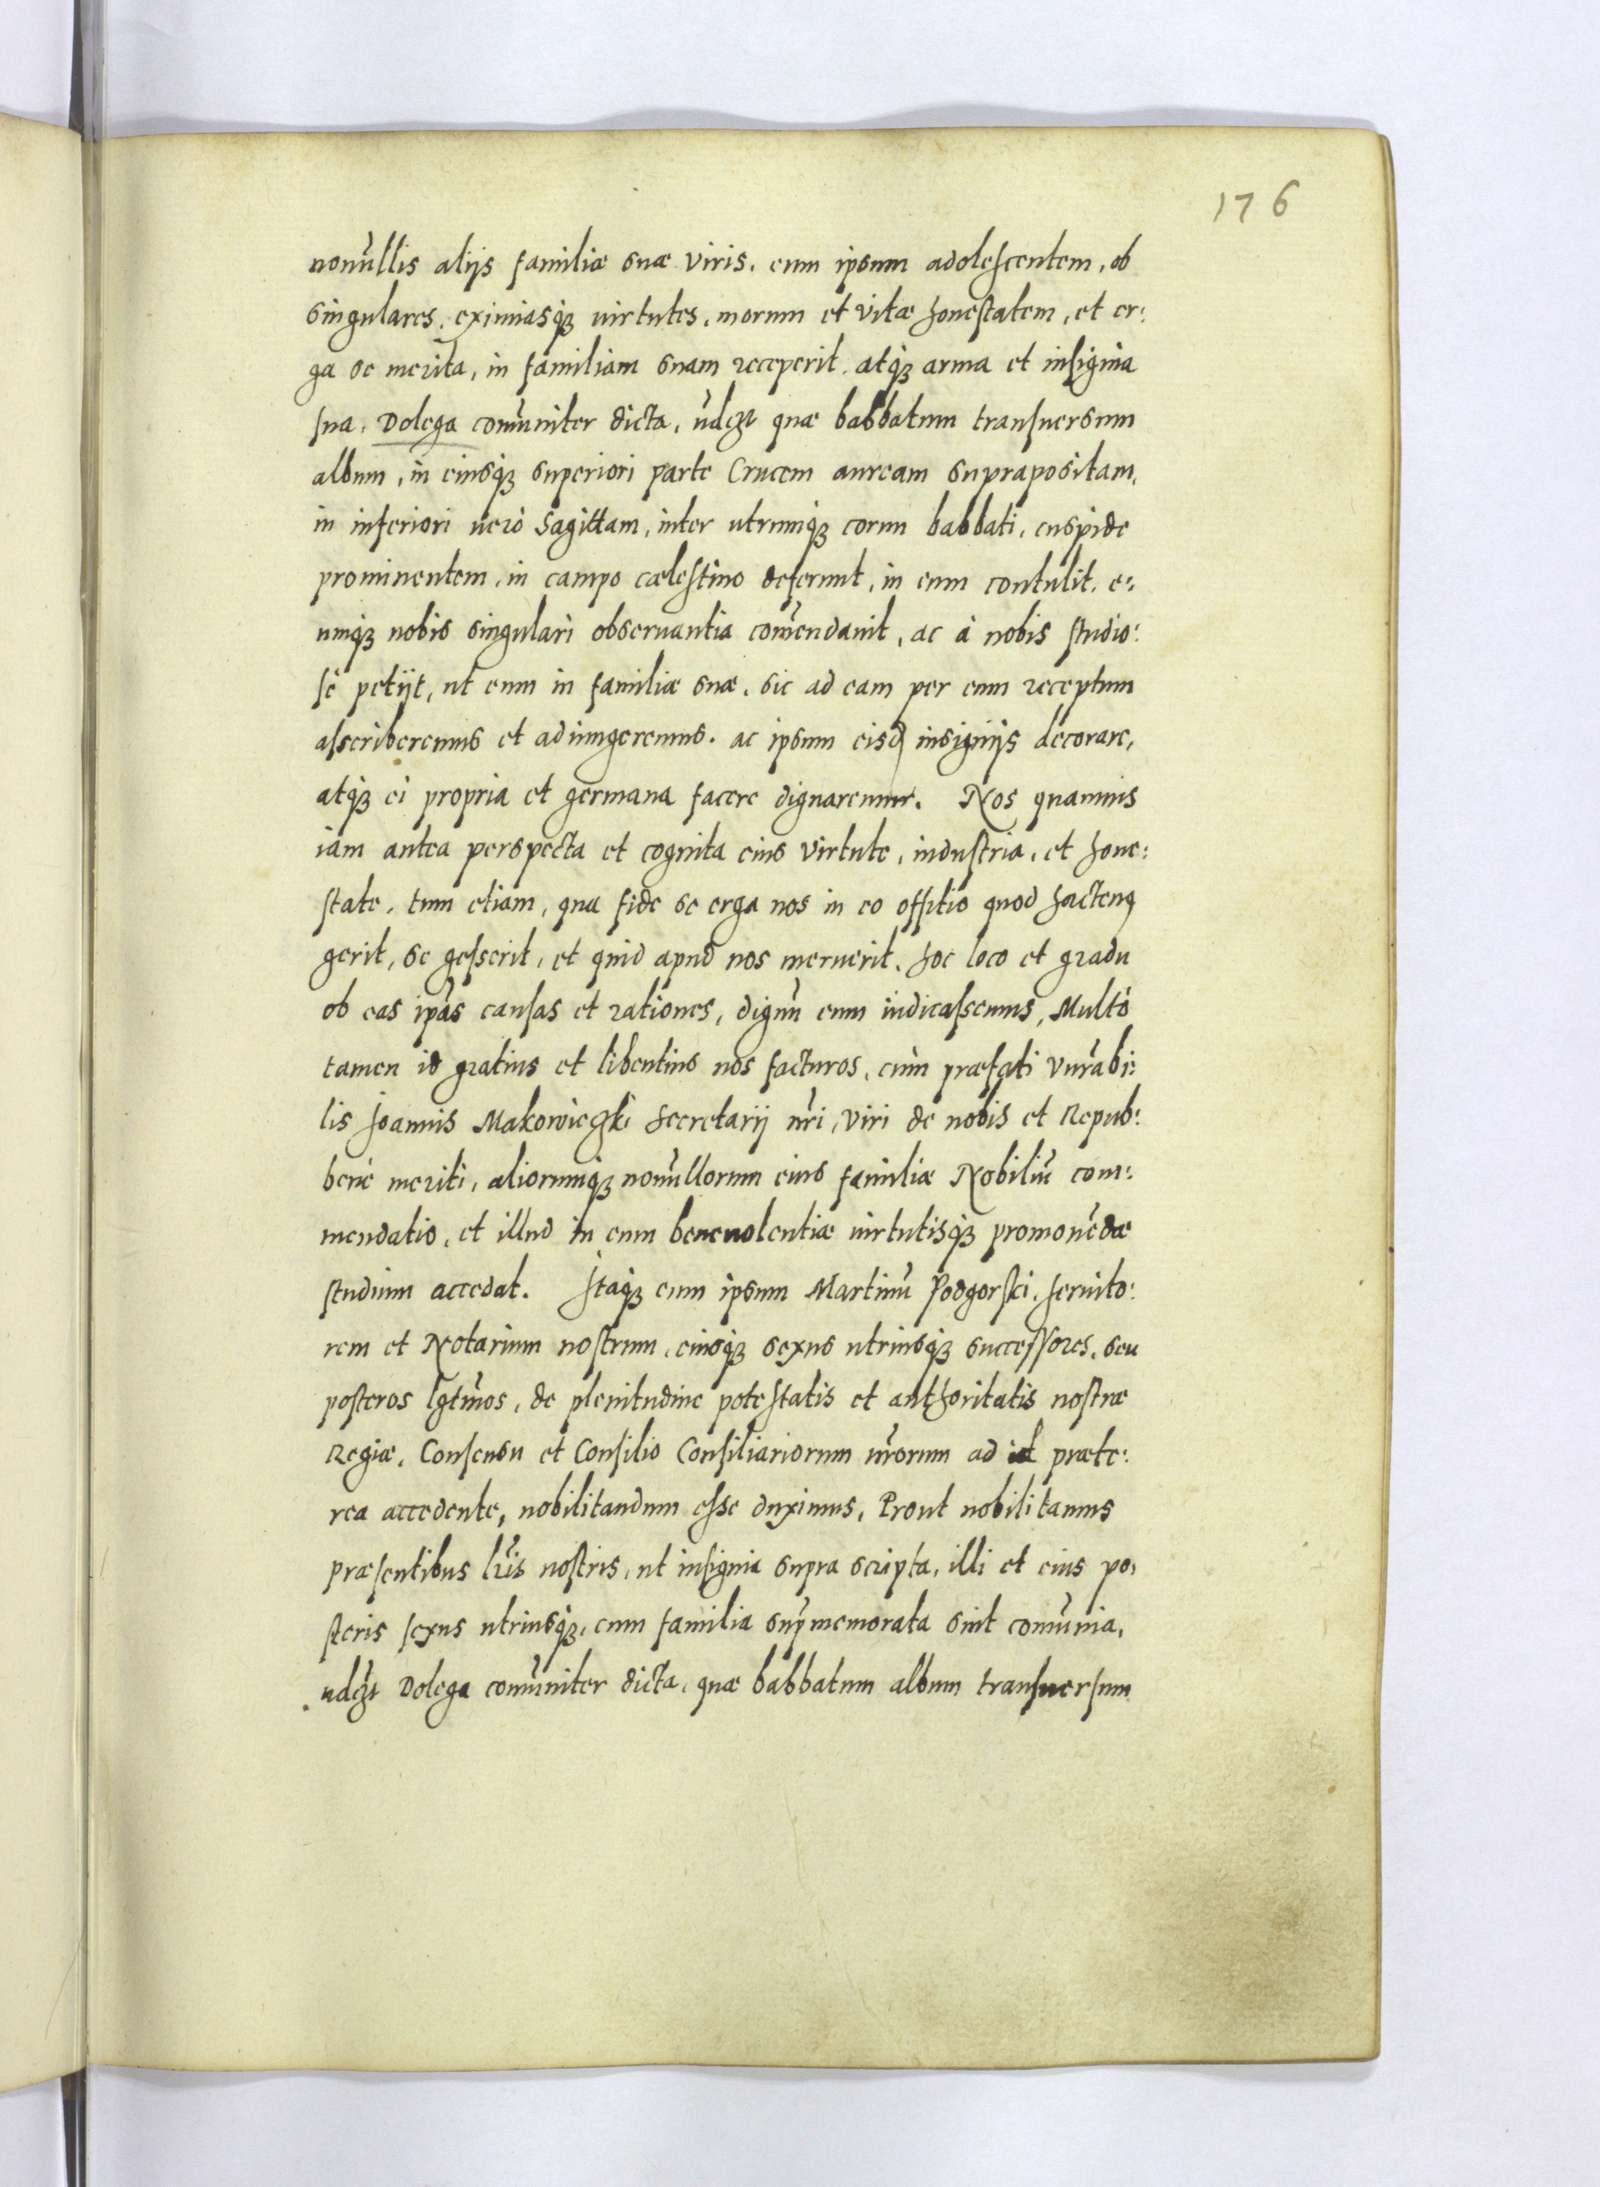 176
nonūllis alijs familiæ suæ viris, eum ipsum adolescentem, ob
singulares, eximiasq; uirtutes, morum et vitæ honestatem, et er:
ga se merita, in familiam suam receperit, atq; arma et insignia
sua, Dolega comūniter dicta, ūdczt quæ babbatum transuersum
album, in eiusq; superiori parte Crucem auream suprapositam,
in inferiori uerò Sagittam, inter utrumq; cornu babbati, cuspide
prominentem, in campo cælestino deferunt, in eum contulit, e:
umq; nobis singulari obseruantia com̄endauit, ac à nobis studio:
sè petijt, ut eum in familiæ suæ, sic ad eam per eum receptum
ascriberemus et adiungeremus, ac ipsum eisd insignijs decorare,
atq; ei propria et germana facere dignaremur. Nos quamuis
iam antea perspecta et cognita eius virtute, industria, et hone:
state, tum etiam, qua fide se erga nos in eo offitio quod hacten9
gerit, se gesserit, et quid apud nos meruerit, hoc loco et gradu
ob eas ip̄as causas et rationes, dignū eum iudicassemus, Multò
tamen id gratius et libentius nos facturos, cùm præfati Vnrābi:
lis Joannis Makowieczki Secretarij nr̄i, viri de nobis et Repub:
benè meriti, aliorumq; nonūllorum eius familiæ Nobiliū com:
mendatio, et illud in eum beneuolentiæ uirtutisq; promouēdæ
studium accedat. Itaq; eum ipsum Martinū Podgorski, Seruito:
rem et Notarium nostrum, eiusq; sexus utriusq; successores, seu
posteros lgtm̄os, de plenitudine potestatis et authoritatis nostræ
Regiæ, Consensu et Consilio Consiliariorum nr̄orum ad id præte:
rea accedente, nobilitandum esse duximus, Prout nobilitamus
præsentibus lr̄is nostris, ut insignia supra scripta, illi et eius po:
steris sexus utriusq;, cum familia sup̄memorata sint comūnia,
udc̄zt Dolega comūniter dicta, quæ babbatum album transuersum